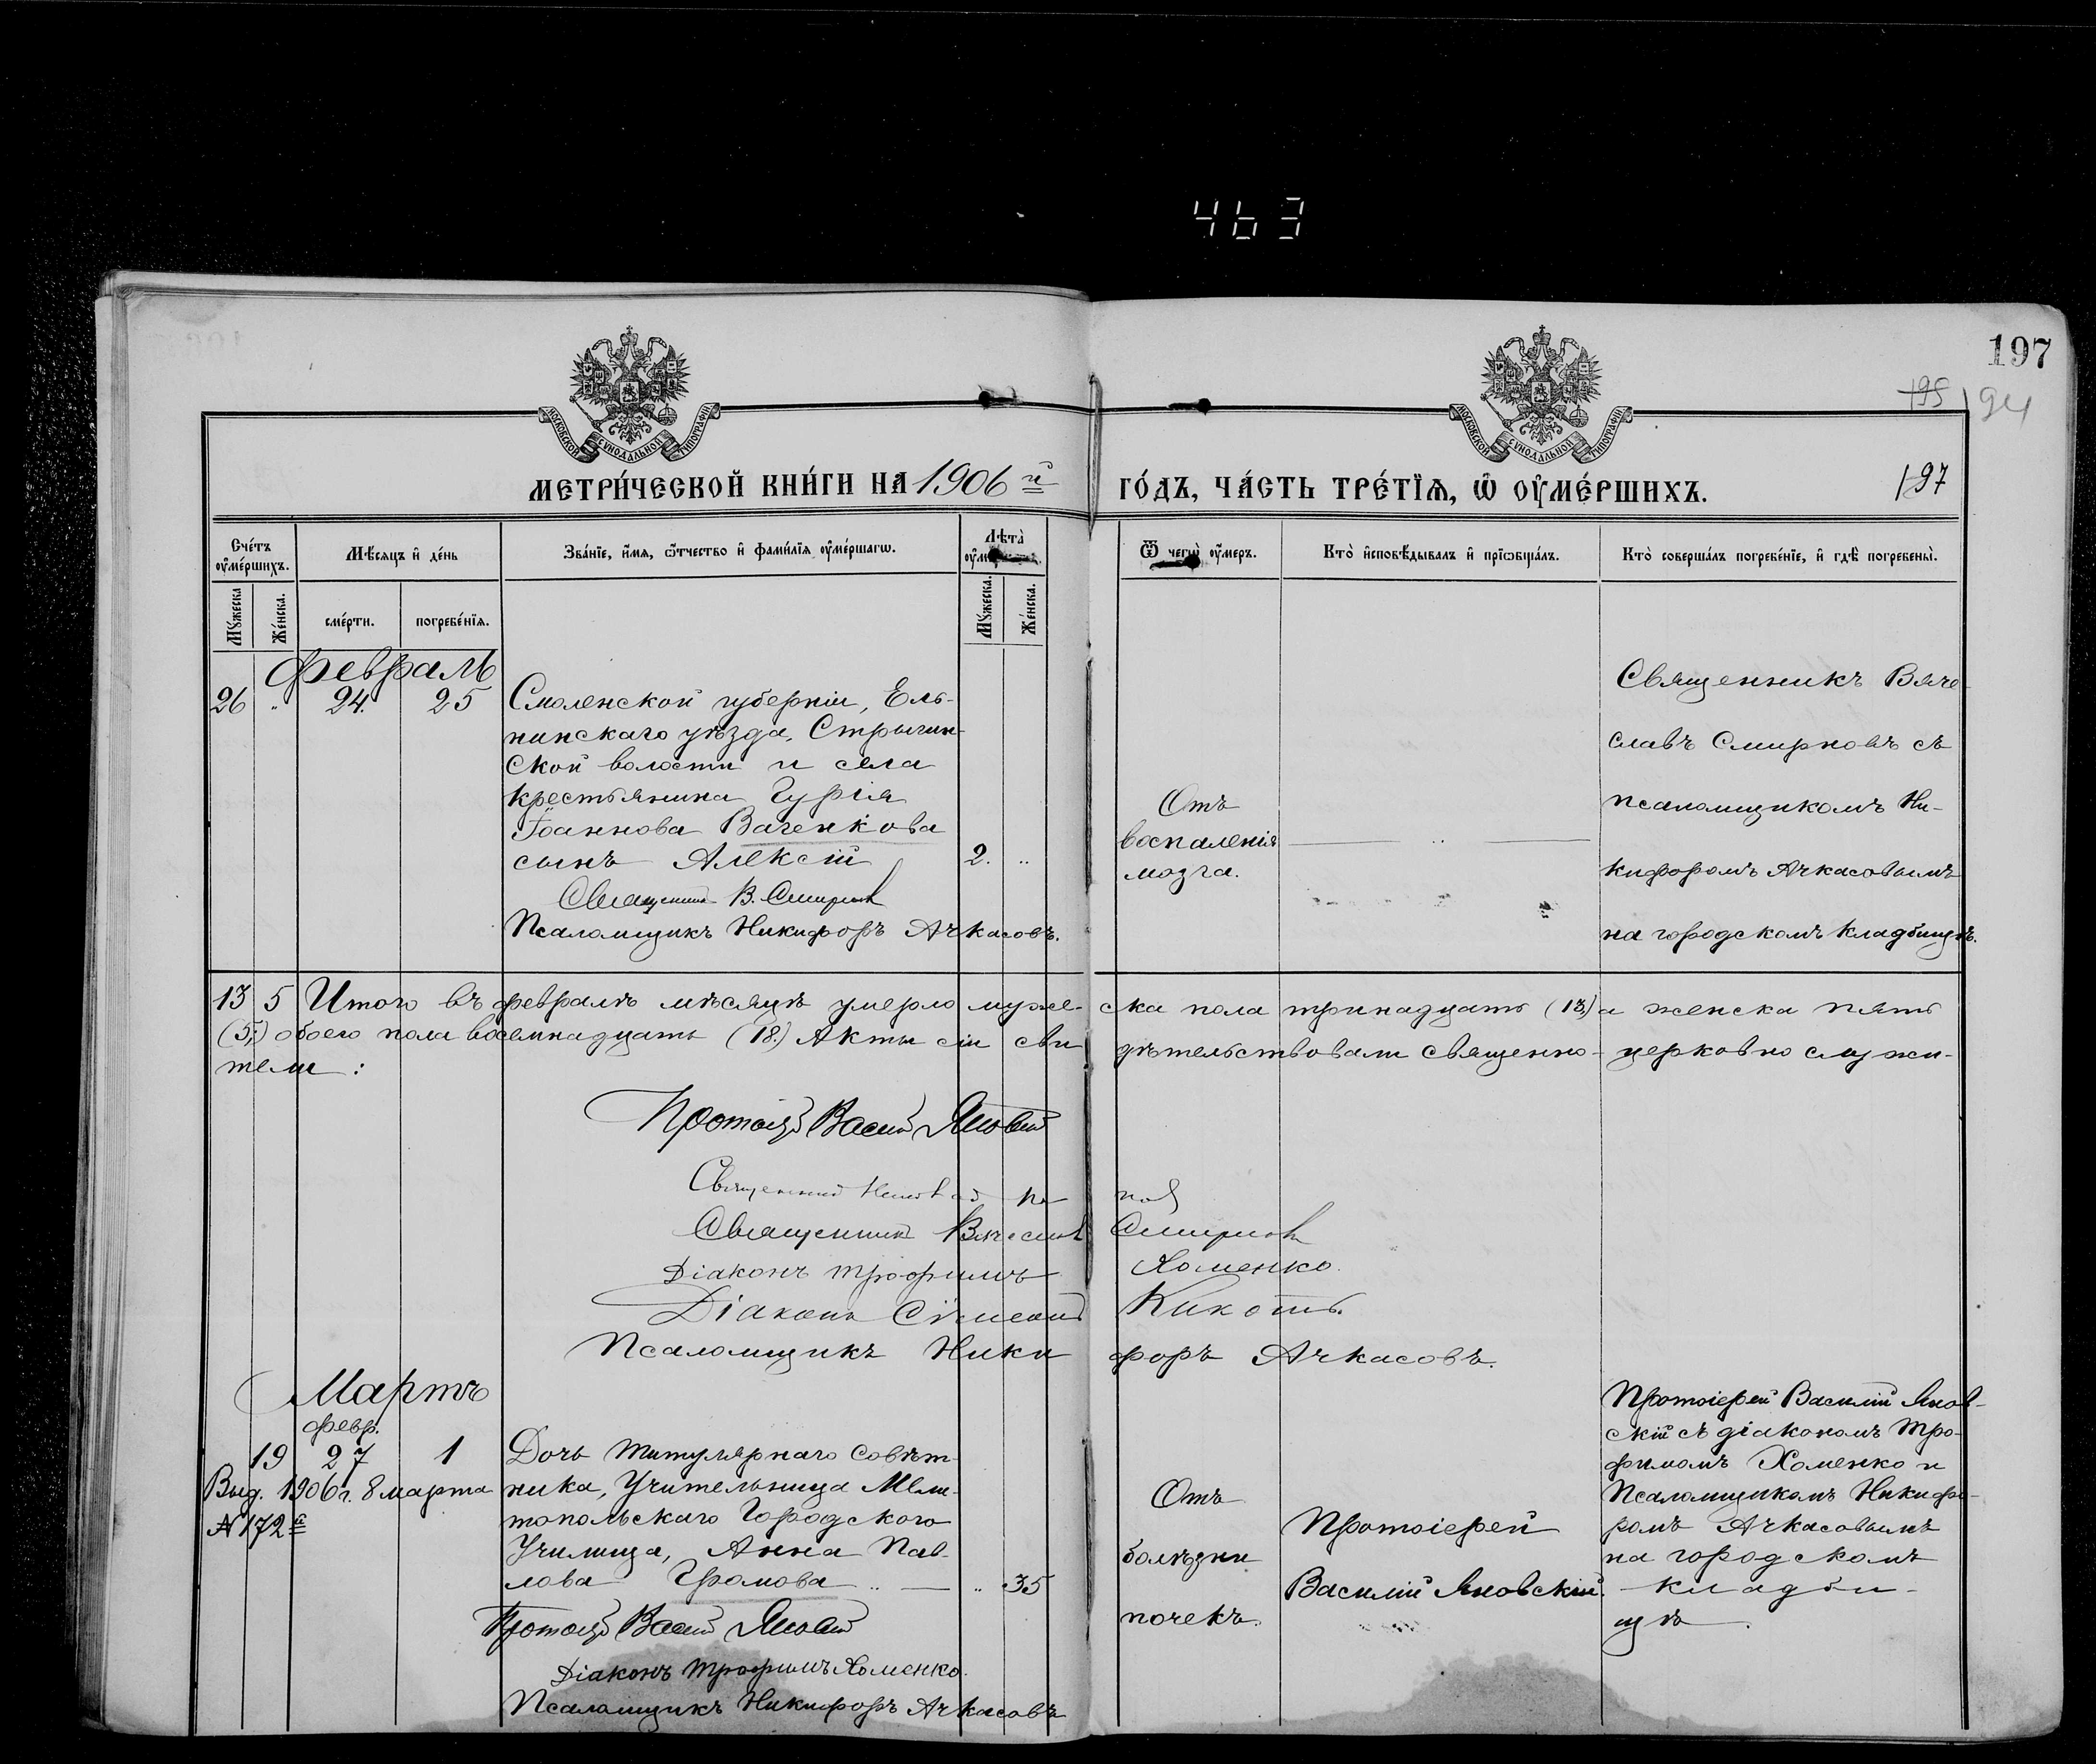 463
197
195 194
МОСКОВСКОЙ СѴНОДАЛЬНОЙ ТИПОГРАФІИ
МОСКОВСКОЙ СѴНОДАЛЬНОЙ ТИПОГРАФІИ
МЕТРИ́ЧЕСКОЙ КНИ́ГИ НА 1906 й
ГО́ДЪ, ЧА́СТЬ ТРЕ́ТЇѦ, Ѡ҆ ОУ҆МЕ́РШИХЪ.
197
Сче́тъ оу҆ме́ршихъ.
Мѣ́сяцъ и҆ де́нь
Зва́нїе, и҆́мѧ, ѻ҆́тчество и҆ фами́лїѧ оу҆ме́ршагѡ.
Лѣ́та
Ѿ чегѡ̀ оу҆́меръ.
Кто̀ и҆сповѣ́дывалъ и҆ прїѡбща́лъ.
Кто̀ соверша́лъ погребе́нїе, и҆ гдѣ̀ погребены̀.
Мꙋ́жеска
Же́нска.
сме́рти.
погребе́нїѧ.
Мꙋ́жеска.
Же́нска.
Февраль
26 " 24. 25
Смоленской губерніи, Ель-
нинскаго уѣзда, Стрыгин-
ской волости и села
крестьянина Гурія
Іоаннова Ваченкова
сынъ Алексій 2. "
Священникъ В. Смирновъ
Псаломщикъ Никифоръ Ачкасовъ.
Отъ
воспаленія
мозга.
Священникъ Вяче-
славъ Смирновъ съ
псаломщикомъ Ни-
кифоромъ Ачкасовымъ
на городскомъ кладбищѣ.
13 5 Итого въ февралѣ мѣсяцѣ умерло муже-ска пола тринадцать (13) а женска пять
(5;) обоего пола восемнадцать (18.) Акты сіи сви дѣтельствовали священно- церковно служи-
тели:
Протоіерей Василій Яновскій
Священникъ По повъ
Священникъ Вячеславъ Смирновъ
Діаконъ Трофимъ Хоменко.
Діаконъ Сѵмеонъ Кикоть.
Псаломщикъ Ники форъ Ачкасовъ.
Мартъ
февр.
19 27 1
Выд. 1906 г. 8 марта
№ 172 й
Дочь Титулярнаго Совѣт-
ника, Учительница Мели-
топольскаго Городского
Училища, Анна Пав-
лова Громова " — " 35
Протоіерей Василій Яновскій
Діаконъ Трофимъ Хоменко.
Псаломщикъ Никифоръ Ачкасовъ
Отъ
болѣзни
почекъ.
Протоіерей
Василій Яновскій.
Протоіерей Василій Янов-
скій съ діакономъ Тро-
фимомъ Хоменко и
Псаломщикомъ Никифо-
ромъ Ачкасовымъ
на городскомъ
кладби-
щѣ.